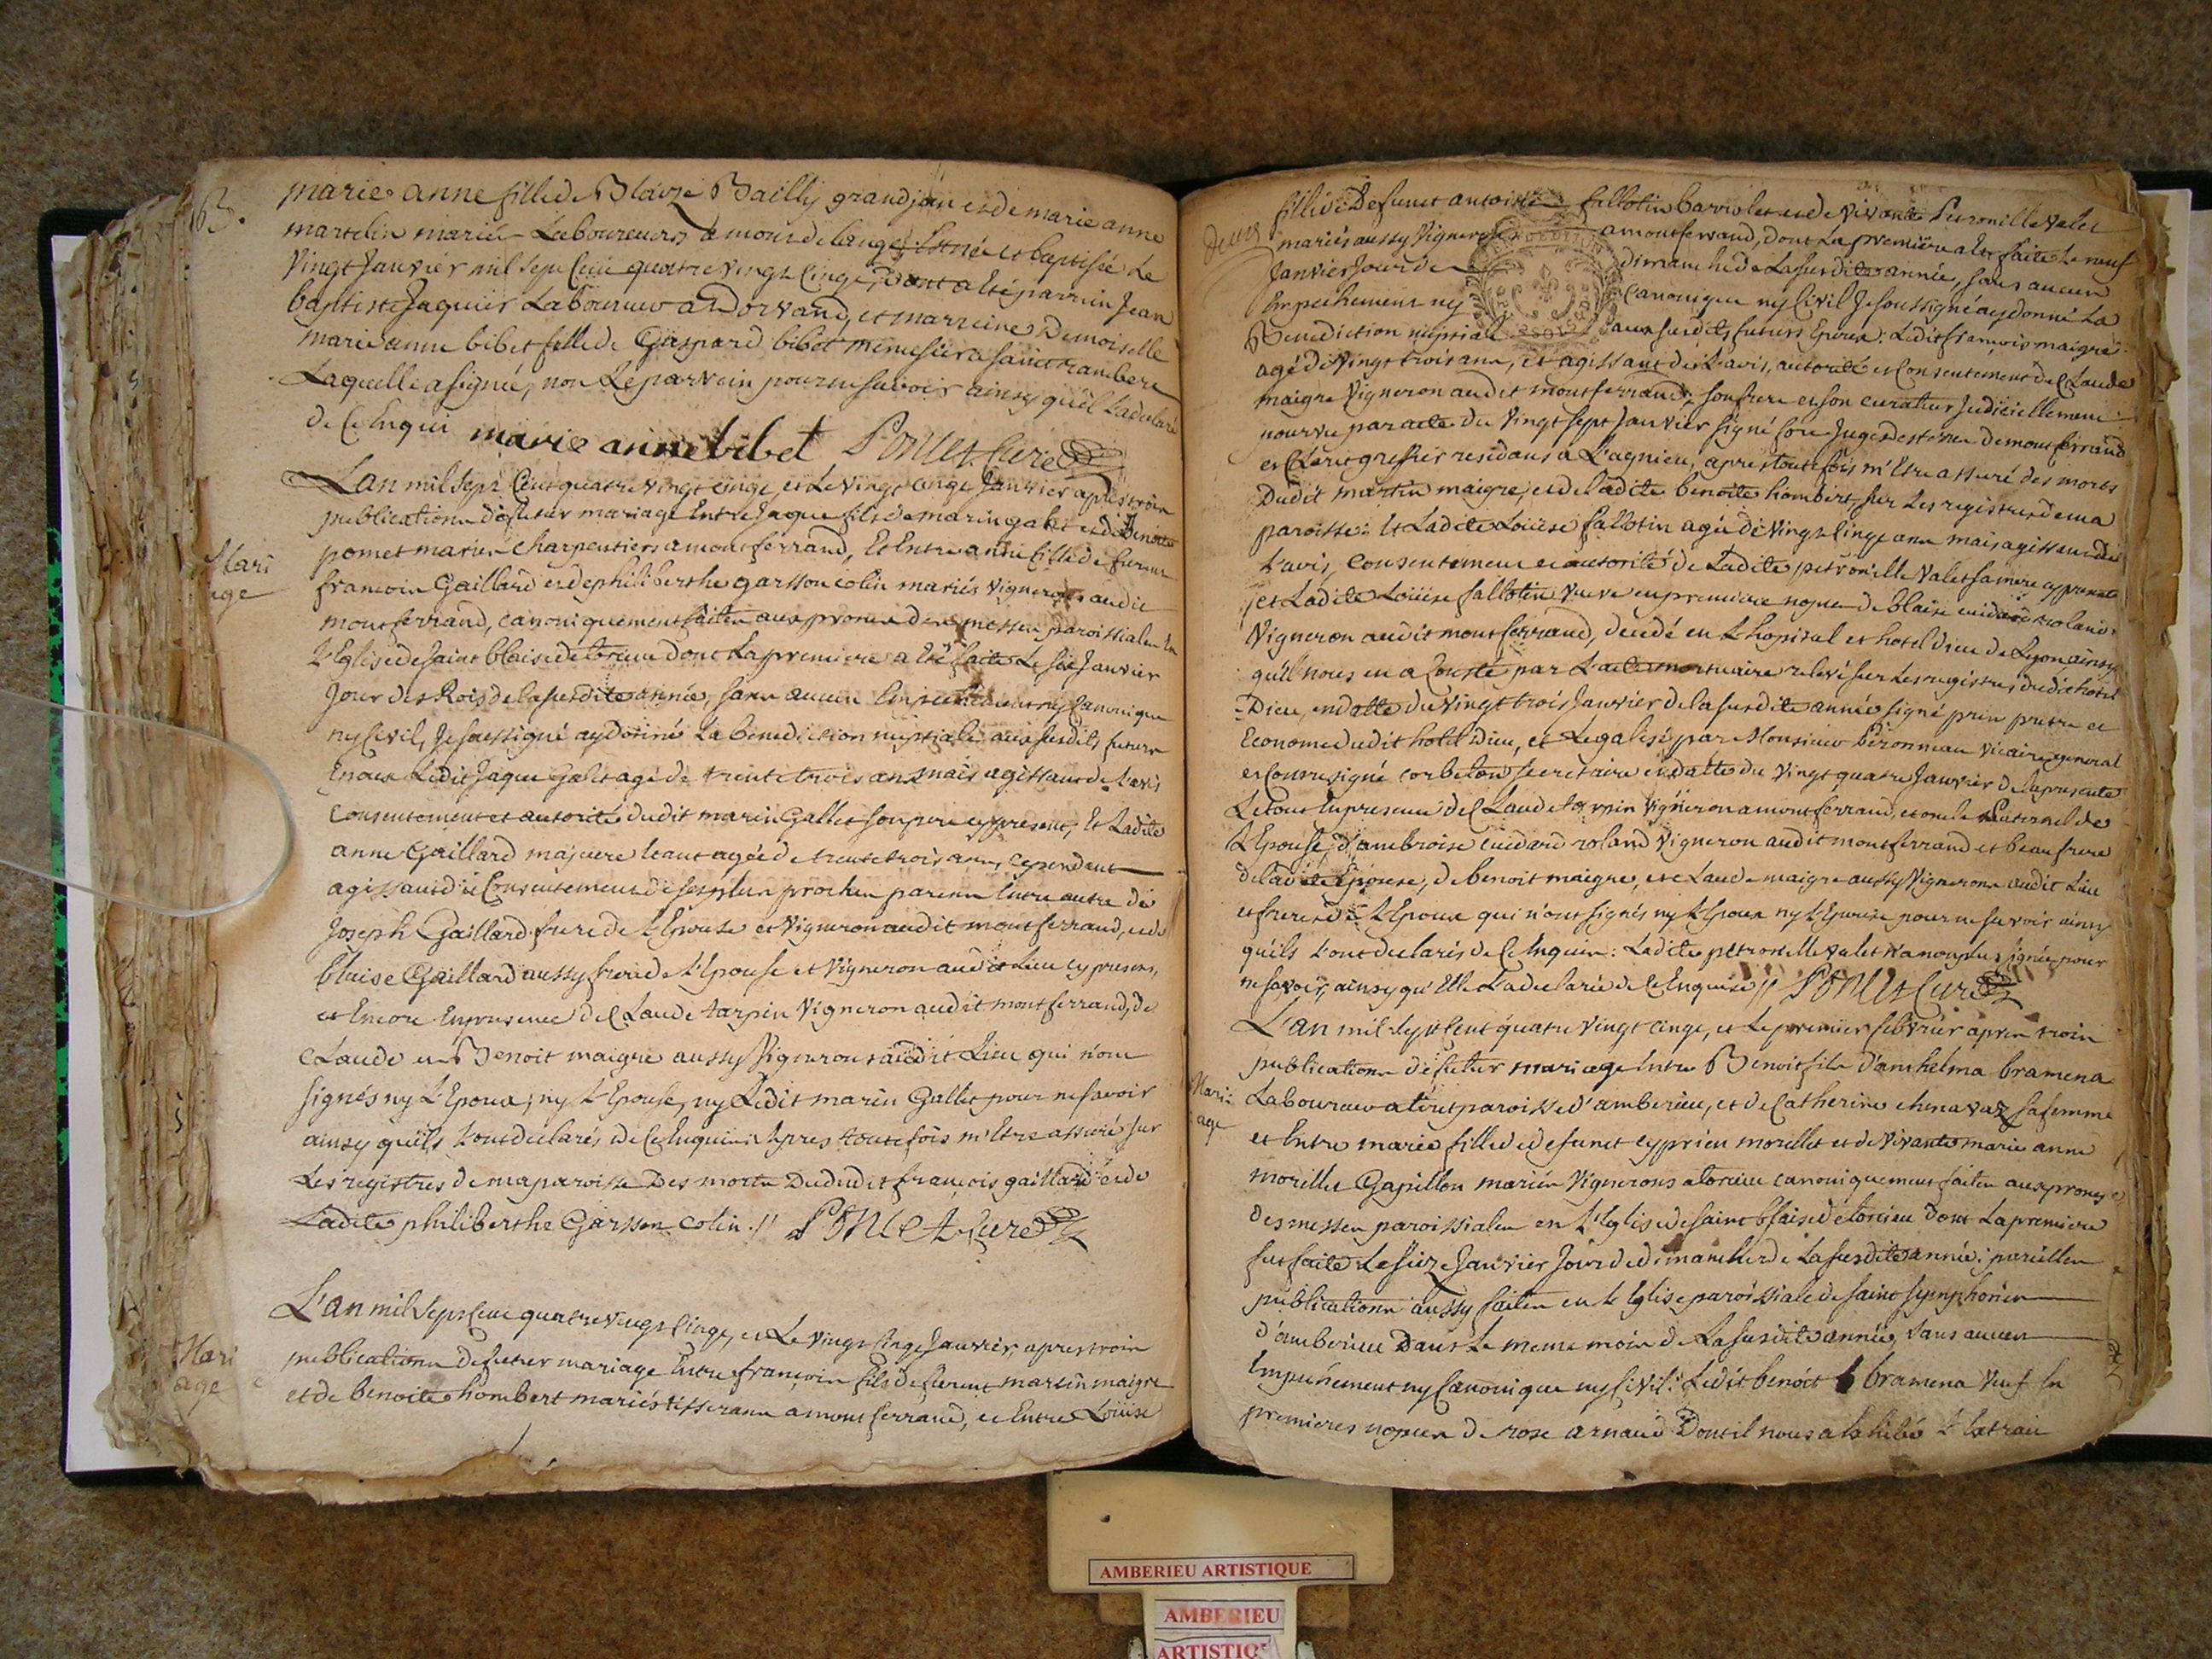 marie anne fille de Blaize Bailly grandjan et de marie anne
martelin mariés Laboureurs a mont de lange, Est née et baptisée Le
Vingt Janvier mil sept Cent quatre vingt Cinqe, Dont a eté parrein Jean
baptiste Jaquier Laboureur a Dorvand, et marreine Demoiselle
marie anne bibet fille de Gaspard bibet menusier a saint rambert
Laquelle a signée, non Le parrein pour ne savoir ainsy qu'il L'a declaré
de Ce Enquis marie anne bibet Poncet Curé
Mari
age
L'an mil sept Cent quatre vingt cinqe, et Le Vingt cinqe Janvier apres trois
publications de futur mariage Entre Jaque fils de marin galet et de Benoite
pomet mariés charpentiers a mont ferrand, Et Entre anne fille de furent
francois Gaillard et de philiberthe garsson colin mariés vignerons audit
montferrand, canoniquement faites aux prones des messes paroissiales En
L'Eglise de saint blaise de torcieu dont La premiere a Eté faite Le six Janvier
Jour des Rois de la susdite année, sans aucun Empechement ny Canonique
ny Civil, Je soussigné ay donné La benediction nuptiale aux susdits futurs
Epoux Ledit Jaque Galet agé de trente trois ans mais agissant de L'avis
Consentement et autorité dudit marin Gallet son pere cy present, Et Ladite
anne Gaillard majeure Etant agée de trente trois ans, cependant
agissant du Consentement de ses plus proches parens Entre autre de
Joseph Gaillard frere de L'Epouse et Vigneron audit mont ferrand, et de
blaise Gaillard aussy frere de L'Epouse et Vigneron audit Lieu cy presens,
et Encore En presence de Claude tarpin Vigneron audit mont ferrand, de
Claude et Benoit maigre aussy Vignerons audit Lieu qui n'ont
signés ny L'Epoux, ny L'Epouse, ny Ledit marin Gallet pour ne savoir
ainsy qu'ils L'ont déclarés de Ce Enquis: apres toute fois m'Etre assuré sur
Les registres de ma paroisse Des morts Dudit françois gaillard et de
Ladite philiberthe Garsson colin .// Poncet Curé
Mari
age
L'an mil sept Cent quatre Vingt Cinqe, et Le vingt Cinqe Janvier, apres trois
publications De futur mariage Entre francois fils de furent martin maigre
et de benoite hombert mariés tisserans a mont ferrand, et Entre Loüise
deux
fille de Defunct antoine fallotin barriolet et de vivante Petronille Valet
mariés aussy Vignerons a mont ferrand, dont La premiere a Eté faite Le neuf
Janvier Jour de dimanche de La susdite année, sans aucun
Empechement ny Canonique ny Civil Je soussigné ay donné La
Benediction nuptiale aux susdits futurs Epoux: Ledit françois maigre
agé de Vingt trois ans, et agissant de L'avis, autorité et Consentement de Claude
maigre Vigneron audit mont ferrand, son frere et son curateur Judiciellement
nourvu par acte du Vingt sept Janvier signé Juge de mont ferrand
et greffier residans a L'agnieu, apres toute fois m'Etre assuré des morts
Dudit martin maigre, et de ladite benoite hombert, sur Les registres de ma
paroisse: Et Ladite Loüise fallotin agée de Vingt Cinqe ans mais agissant de
L'avis, Consentement et autorité de Ladite petronille Valet sa mere cy presente
et Ladite Loüise fallotin Veuve en premiere nopces de blaise cuidard roland
Vigneron audit mont ferrand, decedé en L'hopital et hotel dieu de Lyon ainsy
qu'il nous en a Conste par L'acte mortuaire relevé sur Les registres dudit hotel
Dieu, en datte du Vingt trois Janvier de la susdite année signé prin pretre et
Econome dudit hotel Dieu, et Legalisé par Monsieur Peronneau vicaire general
et Contresigné corbeton secretaire en datte du Vingt quatre Janvier de la presente
Le tout En presence de Claude tarpin Vigneron a mont ferrand, et oncle Paternel de
L'Epouse, d'ambroise cuidard roland Vigneron audit mont ferrand et beau frere
de ladite Epouse, de benoit maigre, et Claude maigre aussy Vignerons audit Lieu
et freres de L'Epoux qui n'ont signés ny L'Epoux ny L'Epouse pour ne savoir ainsy
qu'ils L'ont declarés de Ce Enquis: Ladite petronille valet n'a non plus signée pour
ne savoir, ainsy qu'Elle L'a declarée de Ce Enquise // Poncet Curé
Mari
age
L'an mil sept Cent quatre Vingt cinqe, et Le premier febvrier apres trois
publications de futur mariage Entre Benoit fils d'anthelma bramena
Laboureur a tiret paroisse d'amberieu, et de Catherine chenavaz sa femme
et Entre marie fille de defunct cyprien morellet et de Vivante marie anne
morillet Gapillon mariés Vignerons a torcieu canoniquement faites aux prones
des messes paroissiales en L'Eglise de saint blaise de torcieu dont La premiere
fut faite Le seize Janvier Jour de dimanche de La susdite année: pareilles
publications aussy faites en L'Eglise paroissiale de saint Symphorien
d'amberieu Dans Le meme mois de La susdite année, sans aucun
Empechement ny Canonique ny Civil: Ledit benoit bramena Veuf En
premieres nopces de rose arnaud Dont il nous a Exhibé L'Extrait
AMBERIEU ARTISTIQUE
AMBERIEU
ARTISTIQ